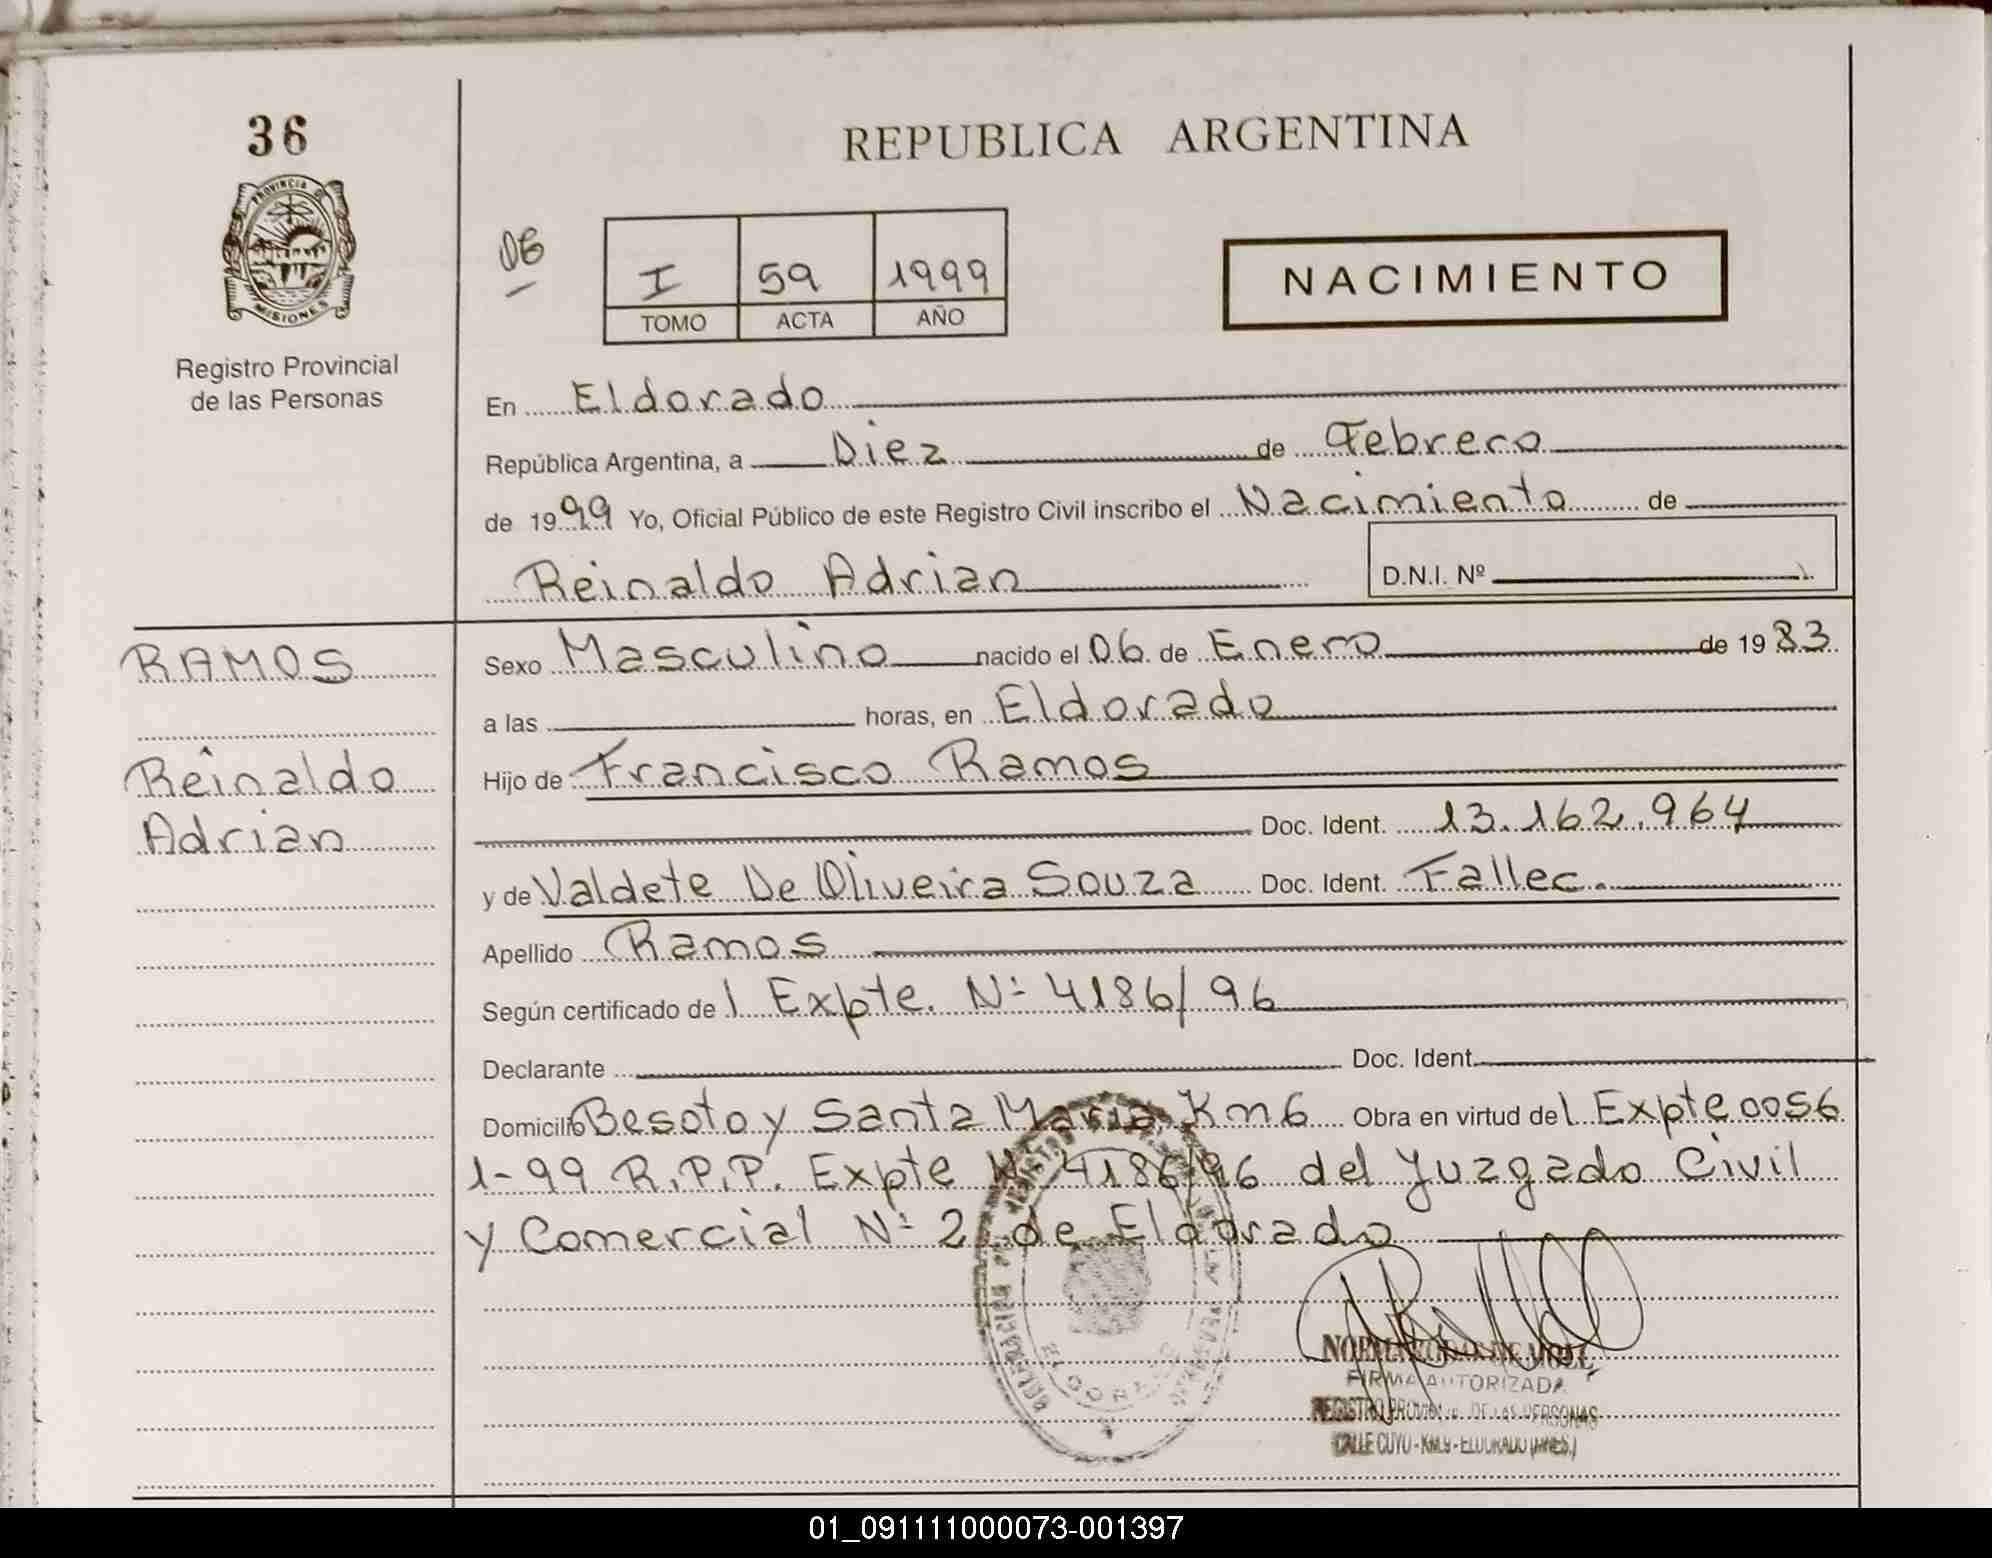 36
REPUBLICA ARGENTINA
PROVINCIA DE
MISIONES
Registro Provincial
de las Personas
I 59 1999
TOMO ACTA AÑO
NACIMIENTO
En Eldorado
República Argentina, a Diez de Febrero
de 1999 Yo, Oficial Público de este Registro Civil inscribo el Nacimiento de
Reinaldo Adrian D.N.I. Nº
RAMOS
Reinaldo
Adrian
Sexo Masculino nacido el 06 de Enero de 1983
a las horas, en Eldorado
Hijo de Francisco Ramos
Doc. Ident. 13.162.964
y de Valdete De Oliveira Souza Doc. Ident. Fallec.
Apellido Ramos
Según certificado de l Expte. Nº 4186/96
Declarante Doc. Ident.
Domicilio Besoto y Santa Maria Km 6 Obra en virtud de l Expte 0056
1-99 R.P.P. Expte Nº 4186/96 del Juzgado Civil
y Comercial Nº 2 de Eldorado
ELDORADO
FIRMA AUTORIZADA
REGISTRO PROVINC. DE LAS PERSONAS
CALLE CUYO - KM. 9 - ELDORADO (MNES.)
01_091111000073-001397